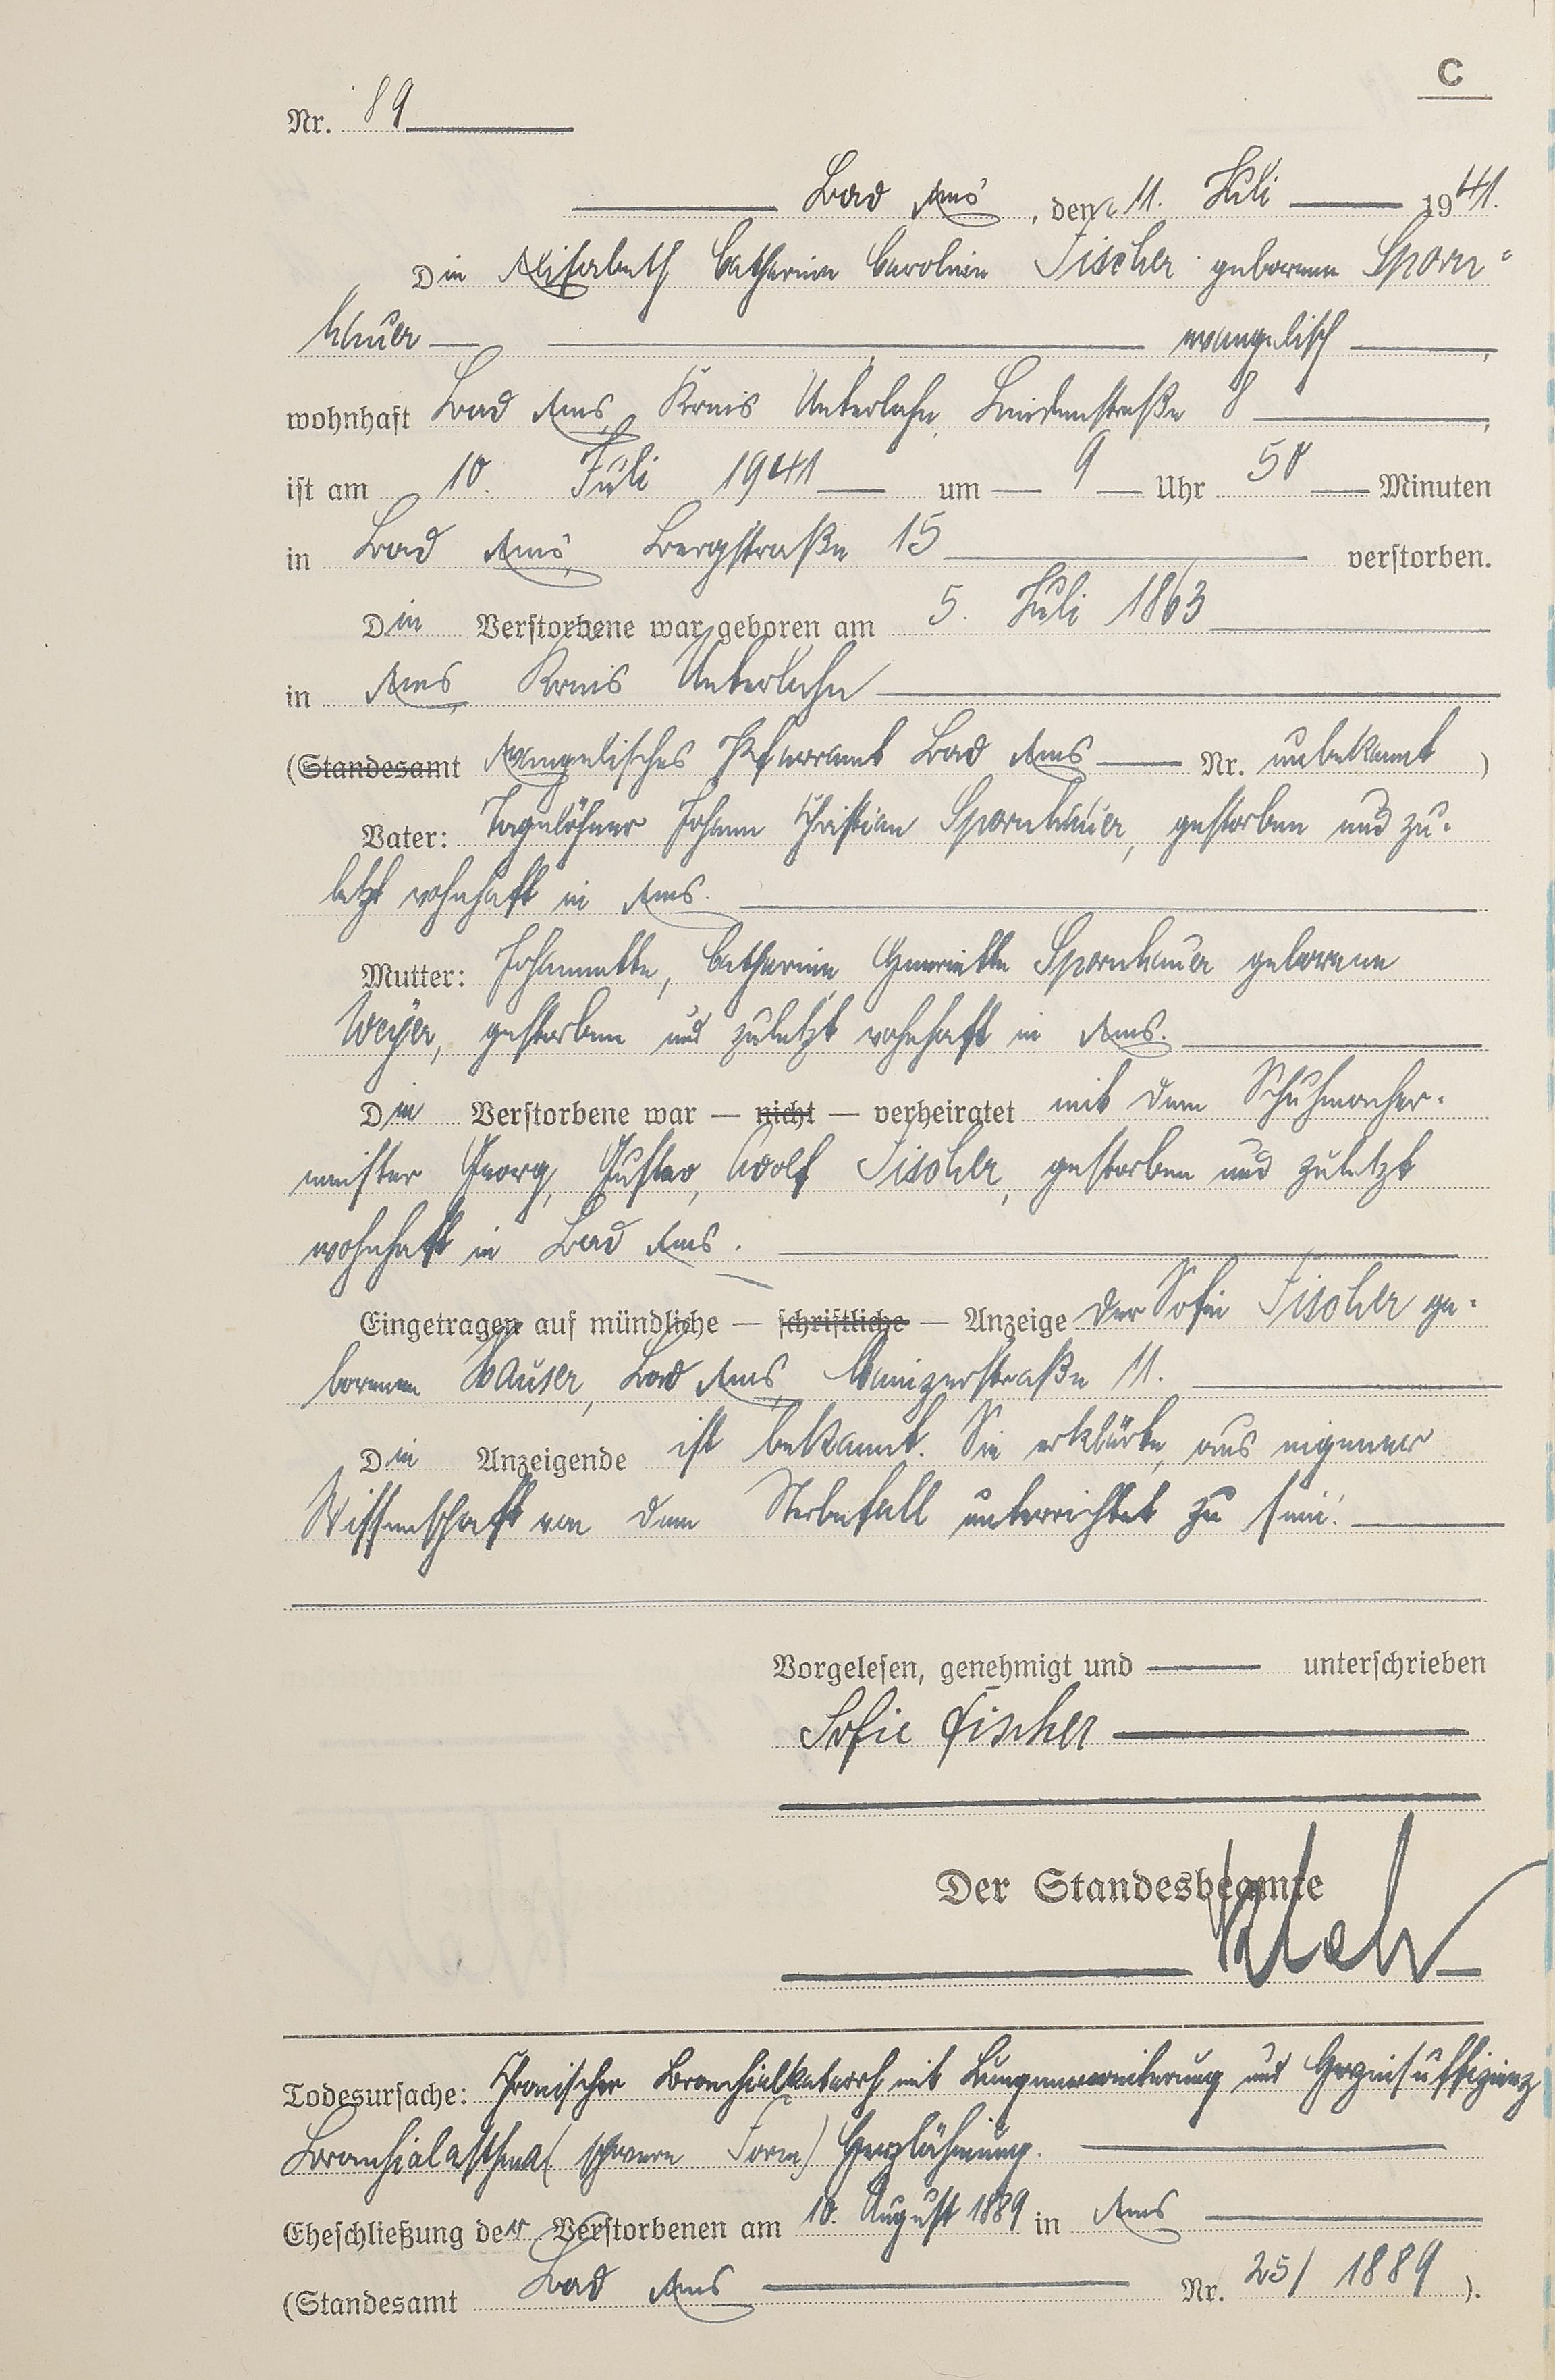 C
Nr. 89
Bad Ems, den 11. Juli 1941.
Die Elisabeth Catharine Caroline Fischer geborene Sporn-
hauer evangelisch,
wohnhaft Bad Ems, Kreis Unterlahn, Lindenstraße 8,
ist am 10. Juli 1941 um 9 Uhr 50 Minuten
in Bad Ems, Bergstraße 15 verstorben.
Die Verstorbene war geboren am 5. Juli 1863
in Ems, Kreis Unterlahn
(Standesamt Evangelisches Pfarramt Bad Ems Nr. unbekannt)
Vater: Tagelöhner Johann Christian Spornhauer, gestorben und zu-
letzt wohnhaft in Ems.
Mutter: Johannette, Catharine, Henriette Spornhauer geborene
Weyer, gestorben und zuletzt wohnhaft in Ems.
Die Verstorbene war — nicht — verheiratet mit dem Schuhmacher-
meister Georg, Gustav, Adolf Fischer, gestorben und zuletzt
wohnhaft in Bad Ems.
Eingetragen auf mündliche — schriftliche — Anzeige der Sofie Fischer ge-
borenen Hauser, Bad Ems, Mainzerstraße 11.
Die Anzeigende ist bekannt. Sie erklärte, aus eigener
Wissenschaft von dem Sterbefall unterrichtet zu sein.
Vorgelesen, genehmigt und unterschrieben
Sofie Fischer
Der Standesbeamte
Todesursache: Chronischer Bronchialkatarrh mit Lungenerweiterung und Herzinsuffizienz
Bronchialasthma (schwere Form) Herzlähmung.
Eheschließung der Verstorbenen am 10. August 1889 in Ems
(Standesamt Bad Ems Nr. 25/1889).